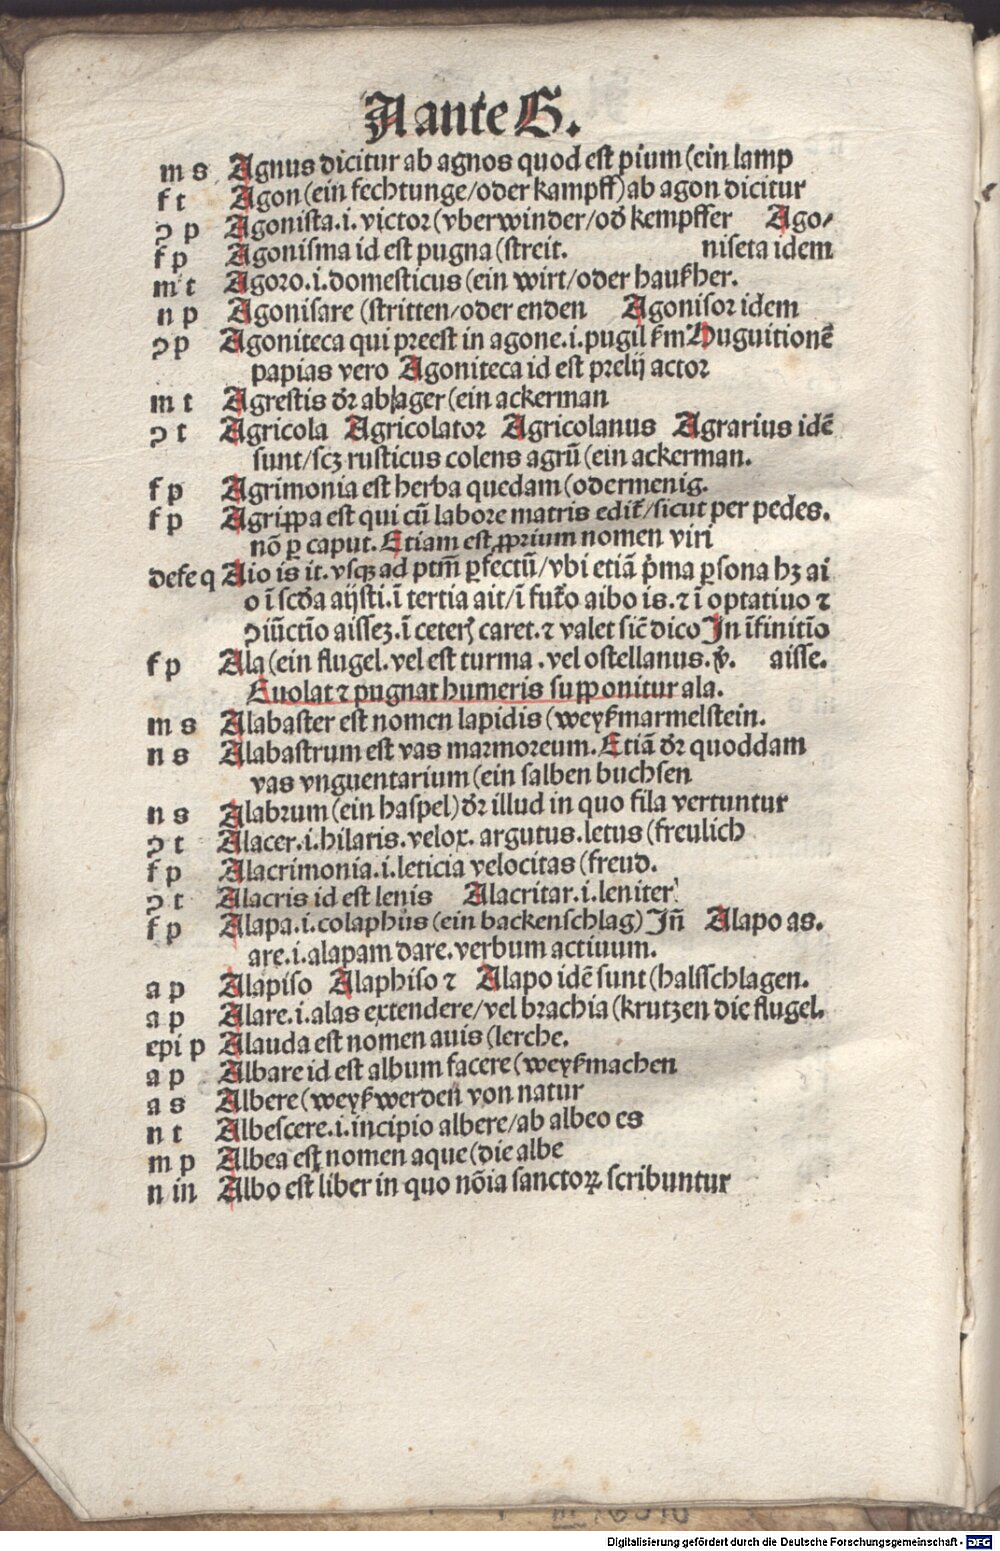 A ante G.
m s Agnus dicitur ab agnos quod est pium (ein lamp
f t Agon (ein fechtunge/oder kampff) ab agon dicitur
ꝯ p Agonista .i. victor (vberwinder/od̄ kempffer Ago/
f p Agonisma id est pugna (streit. niseta idem
m t Agoro .i. domesticus (ein wirt/oder haußher.
n p Agonisare (stritten/oder enden Agonisor idem
ꝯ p Agoniteca qui preest in agone .i. pugil ẜm Huguitionē
papias vero Agoniteca id est prelij actor
m t Agrestis dr̄ ab ager (ein ackerman
ꝯ t Agricola Agricolator Agricolanus Agrarius idē
sunt/scꝫ rusticus colens agrū (ein ackerman.
f p Agrimonia est herba quedam (odermenig.
f p Agrippa est qui cū labore matris edit̄/sicut per pedes.
nō ꝑ caput. Etiam est ꝓprium nomen viri
defe q Aio is it. vsqꝫ ad ptm̄ ꝑfectū/vbi etiā p̄ma ꝑsona hꝫ ai
o ī scd̄a aijsti. ī tertia ait/ī fut̄o aibo is. ⁊ ī optatiuo ⁊
ꝯiūctīo aissez. ī ceter̄ caret. ⁊ valet sic̄ dico In īfinitīo
f p Ala (ein flugel. vel est turma. vel ostellanus. v̄. aisse.
Euolat ⁊ pugnat humeris supponitur ala.
m s Alabaster est nomen lapidis (weyßmarmelstein.
n s Alabastrum est vas marmoreum. Etiā dr̄ quoddam
vas vnguentarium (ein salben buchsen
n s Alabrum (ein haspel) dr̄ illud in quo fila vertuntur
ꝯ t Alacer .i. hilaris. velox. argutus. letus (freulich
f p Alacrimonia .i. leticia velocitas (freud.
ꝯ t Alacris id est lenis Alacritar .i. leniter
f p Alapa .i. colaphus (ein backenschlag) Jn̄ Alapo as.
are .i. alapam dare. verbum actiuum.
a p Alapiso Alaphiso ⁊ Alapo idē sunt (halsschlagen.
a p Alare .i. alas extendere/vel brachia (krutzen die flugel.
epi p Alauda est nomen auis (lerche.
a p Albare id est album facere (weyßmachen
a s Albere (weyßwerden von natur
n t Albescere .i. incipio albere/ab albeo es
m p Albea est nomen aque (die albe
n in Albo est liber in quo nōia sanctoꝝ scribuntur
Digitalisierung gefördert durch die Deutsche Forschungsgemeinschaft - DFG